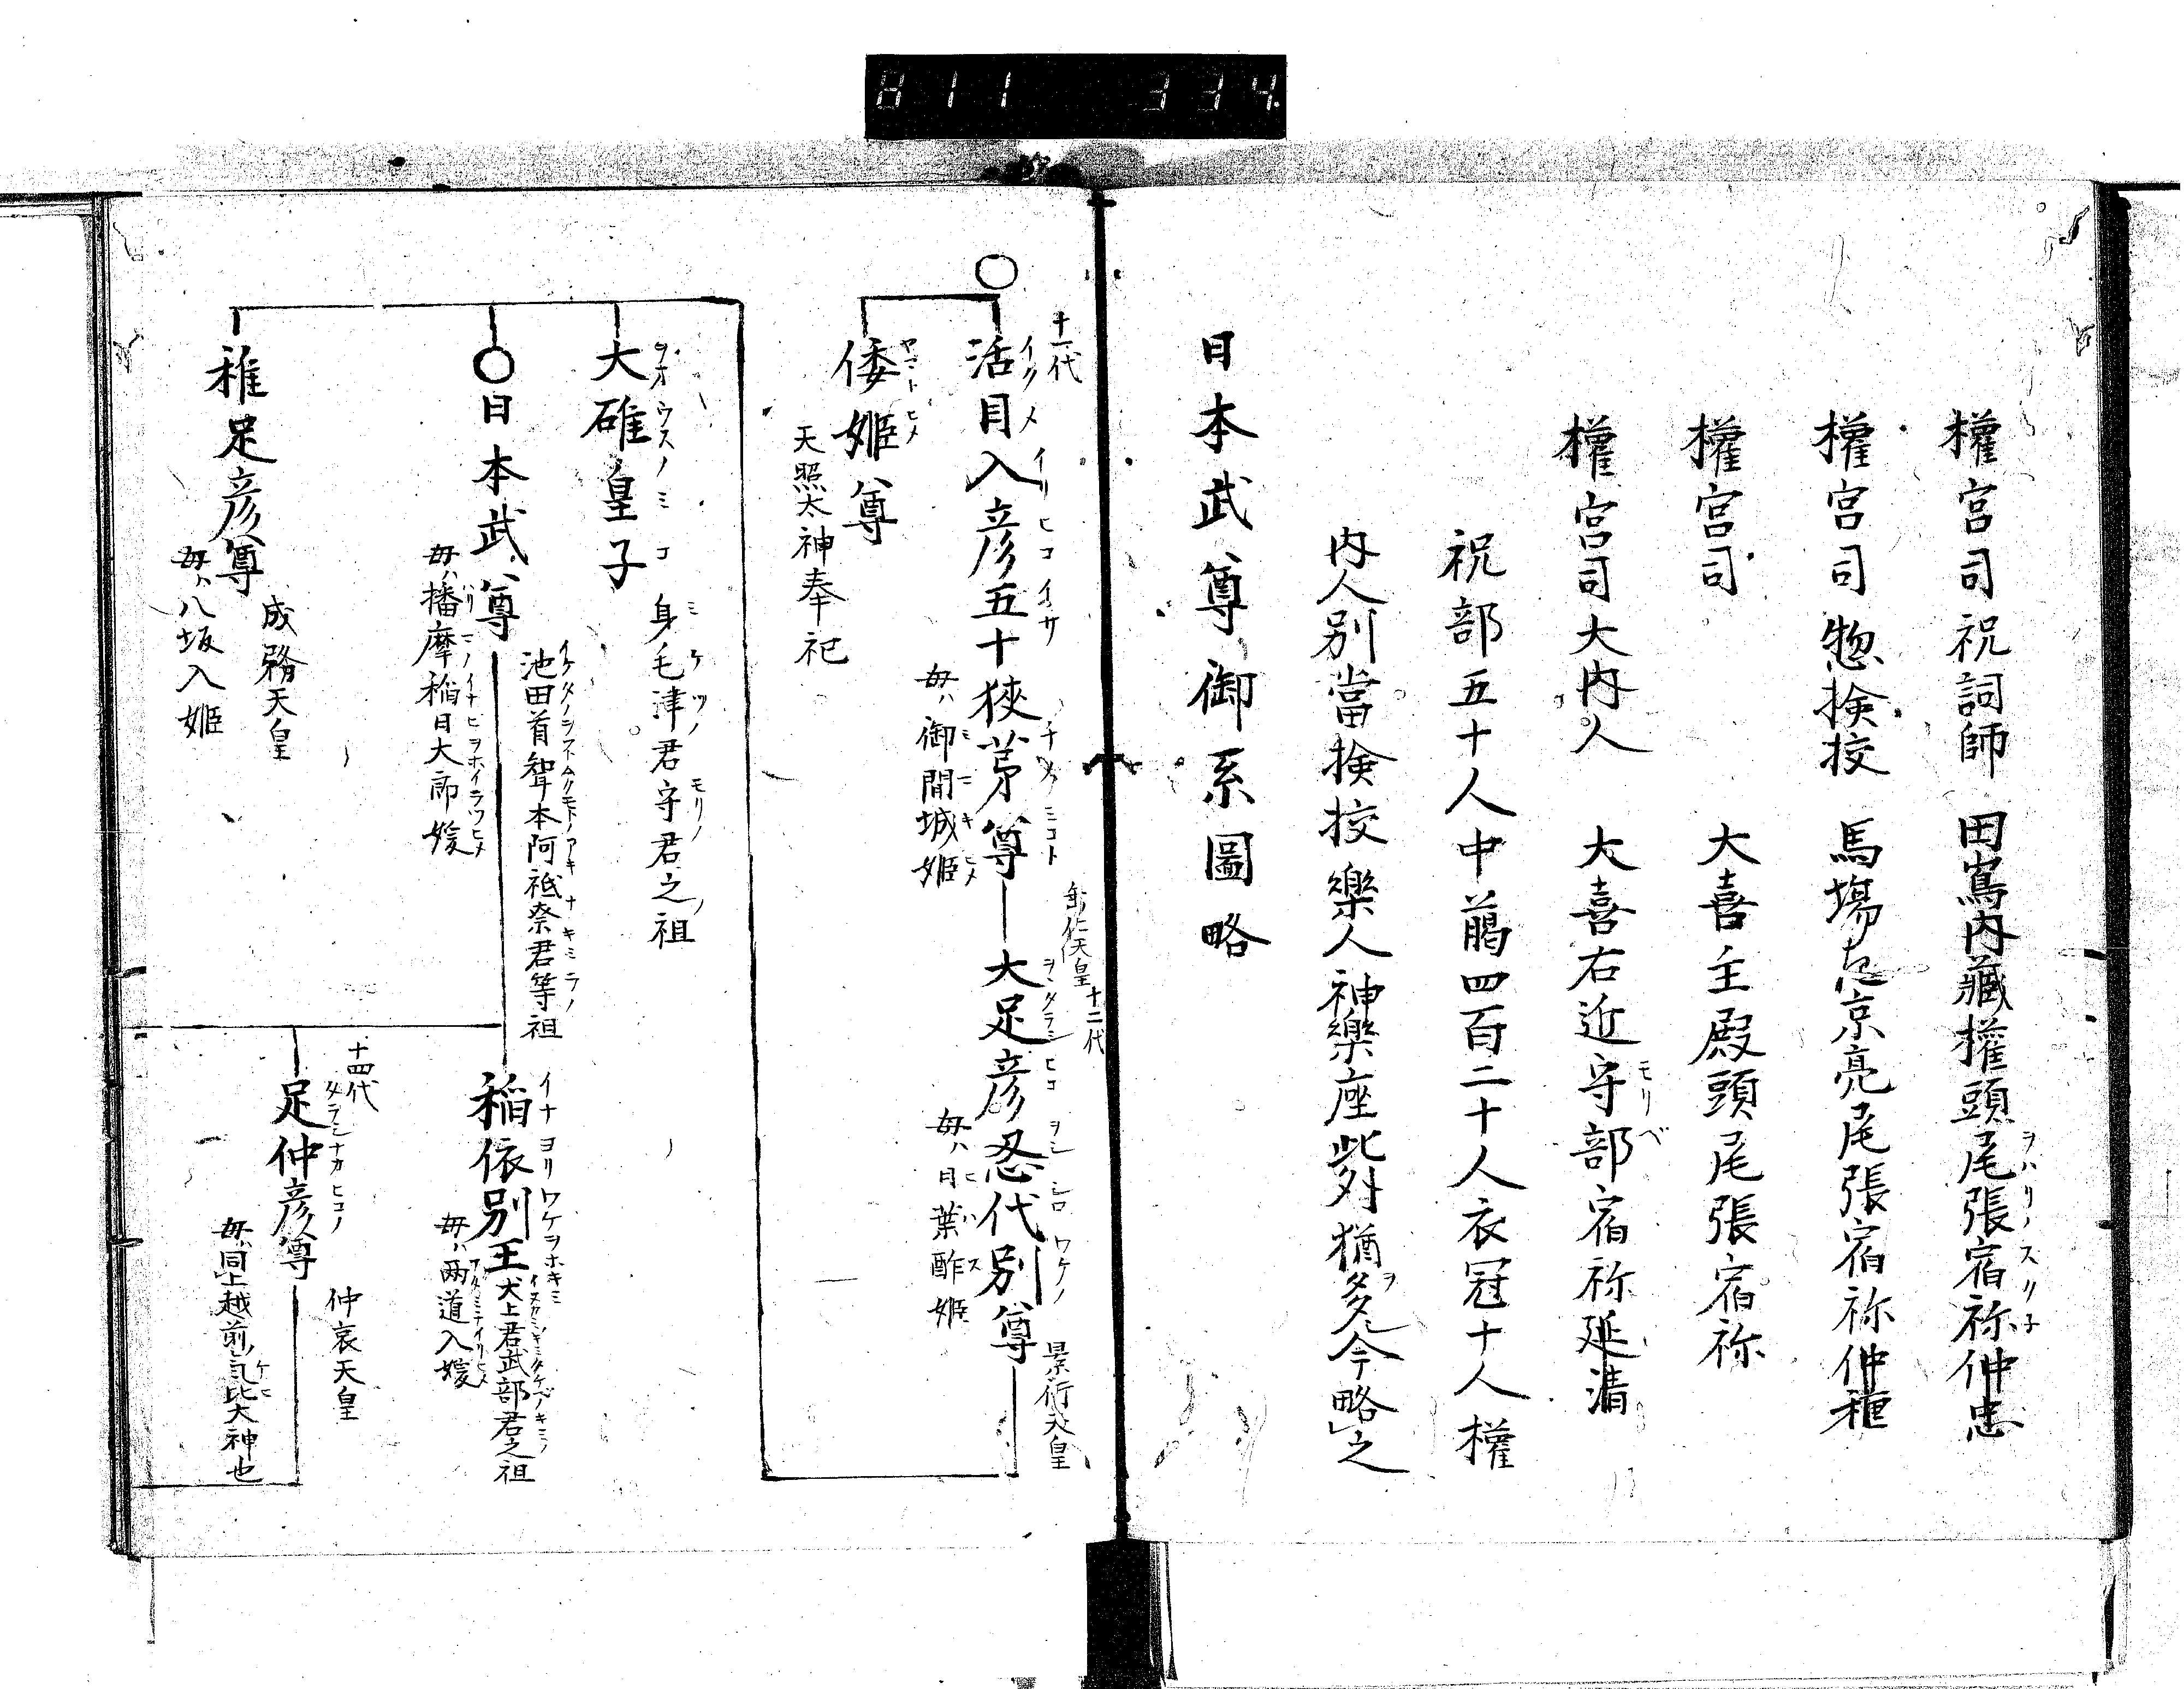 H11 334.
權宮司祝詞師 田嶌内藏權頭尾張宿祢仲忠
權宮司惣検挍 馬場左京亮尾張宿祢仲種
權宮司 大喜主殿頭尾張宿祢
權宮司大内人 大喜右近守部宿祢延清
祝部五十人中﨟四百二十人衣冠十人權
内人別當検挍樂人神樂座此外猶多今略之
日本武尊御系圖略
十一代
活目入彦五十狹茅尊
イクメイリヒコイサチノミコト
垂仁天皇
母ハ御間城姫
十二代
大足彦忍代別尊
景行天皇
母ハ日葉酢姫
倭姫尊
ヤマトヒメ
天照太神奉祀
大碓皇子
ヲオウスノミコ
身毛津君守君之祖
ミケツノ モリノ
○日本武尊
母ハ播摩稲日大郎媛
池田首聟本阿祗奈君等祖
稚足彦尊
成務天皇
母ハ八坂入姫
稲依別王
イナヨリワケヲホキミ
犬上君武部君之祖
母ハ両道入媛
十四代
足仲彦尊
タラシナカヒコノ
仲哀天皇
母ハ同上越前ノ気比大神也